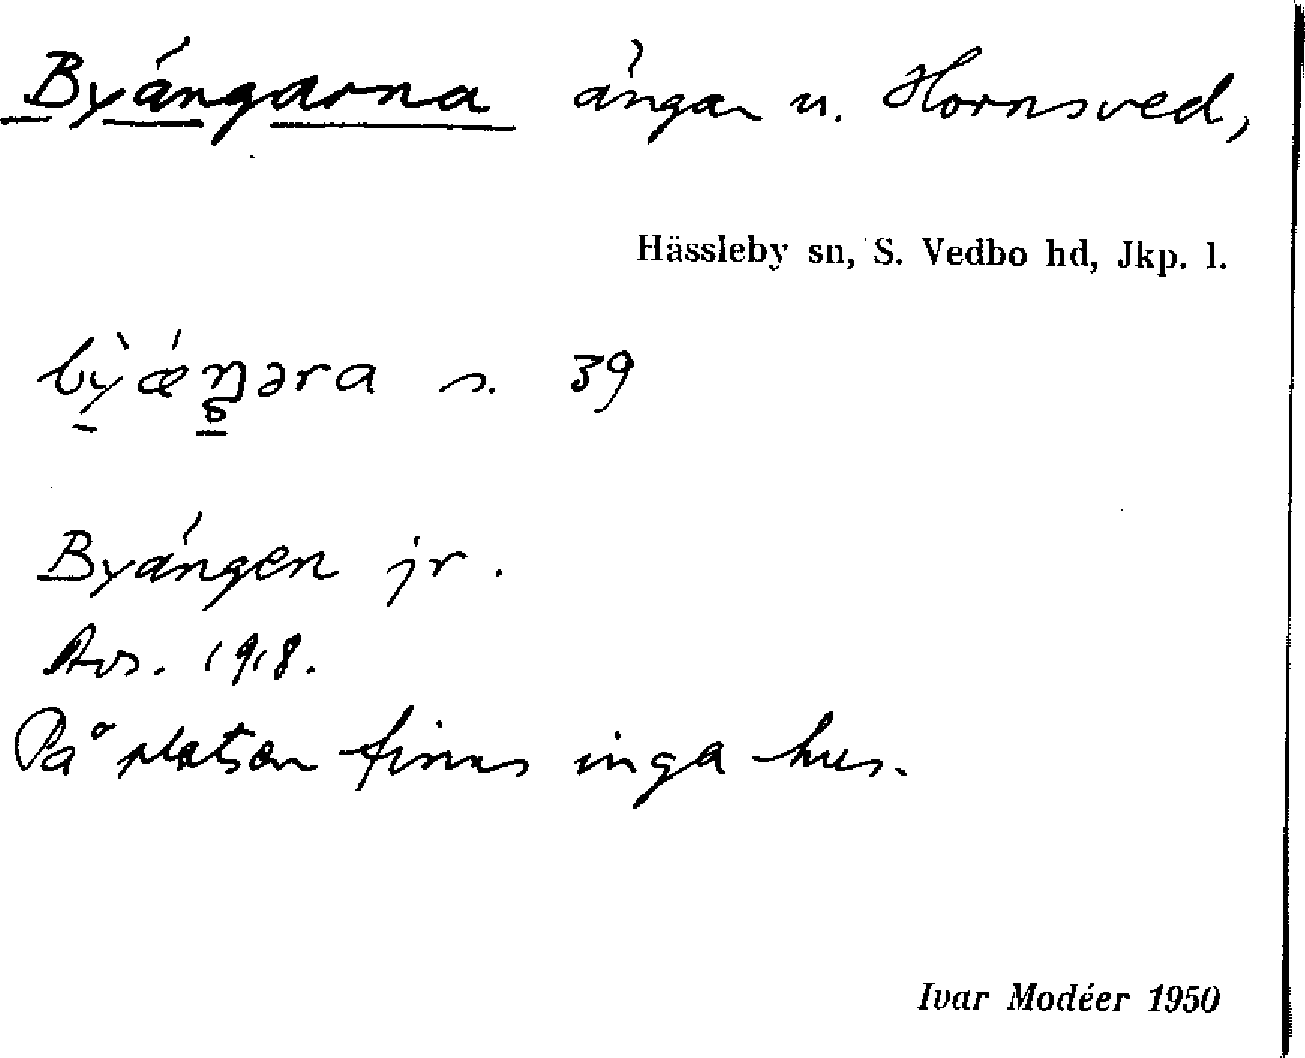 Byängarna ängar u. Hornsved,
Hässleby sn, S. Vedbo hd, Jkp. l.
bỳǽŋəra s. 39
Byängen jr.
Avs. 1918.
På platsen finns inga hus.
Ivar Modéer 1950